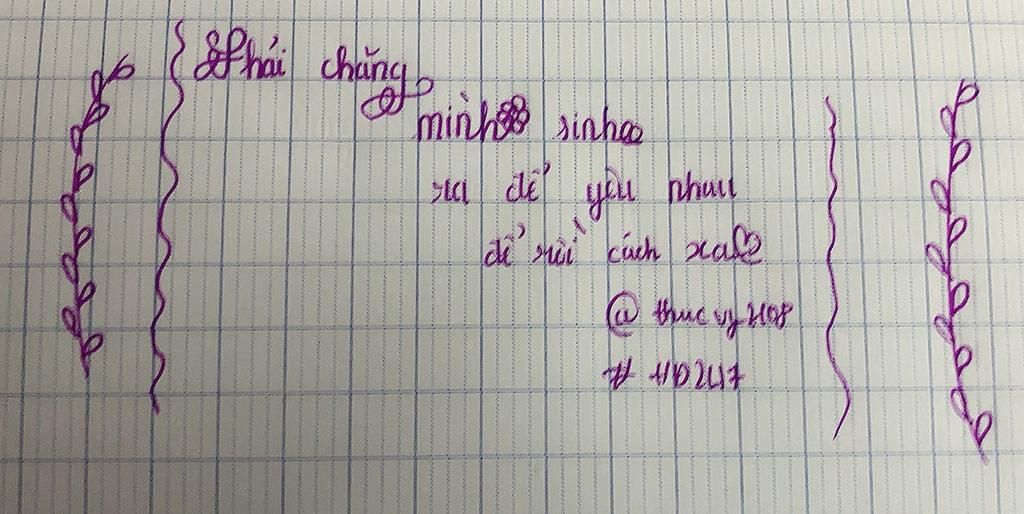 Phải chăng
mình sinh
ra để yêu nhau
để rồi cách xa
@thucvy2108
#HD247